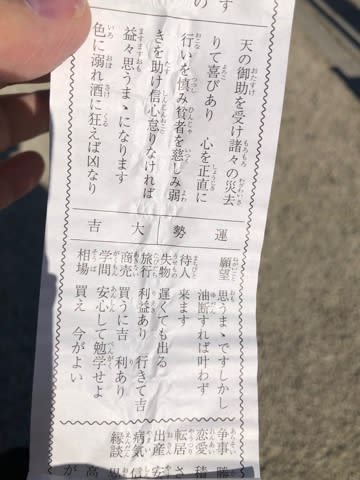 す
の
天の御助を受け諸々の災去
りて喜びあり 心を正直に
行いを慎み貧者を慈しみ弱
きを助け信心怠りなければ
益々思うまゝになります
色に溺れ酒に狂えば凶なり
運勢 大吉
願望 思うまゝですしかし
油断すれば叶わず
待人 来ます
失物 遅くても出る
旅行 利益あり 行きて吉
商売 買うに吉 利あり
学問 安心して勉学せよ
相場 買え 今がよい
争事 勝
恋愛 積
転居 さ
出産 安
病気 信
縁談 思
高
が